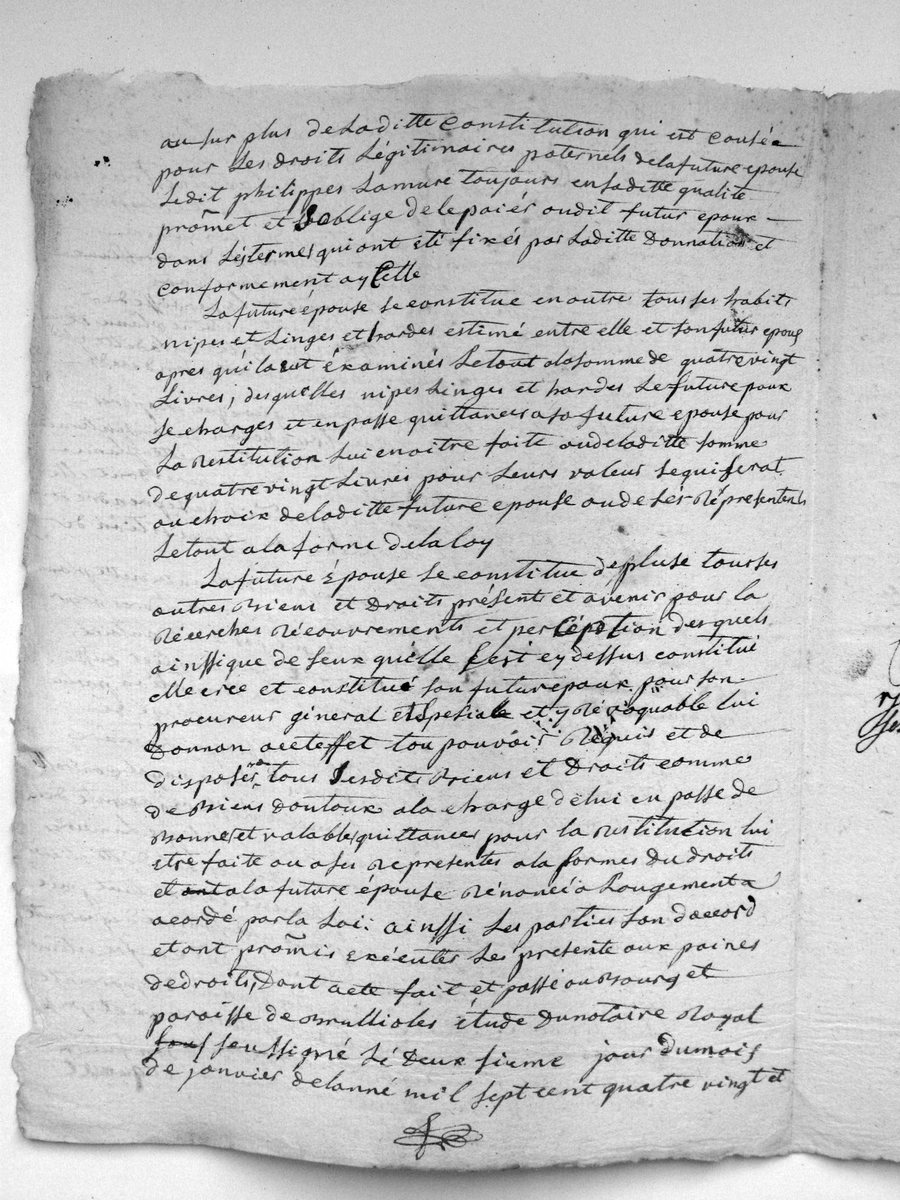 au sur plus de Laditte Constitution qui est causée
pour Les droits Légitimaires paternels de la future epouse
Ledit philippes Lamure toujours en saditte qualité
promet et S'oblige de le paiér audit futur epoux
dans Lesterme qui ont été fixés par Laditte Donnation et
conformement a yCelle
La future épouse se constitue en outre tous ses habits
nipes et Linges et hardes estimé entre elle et son futur epoux
apres quila ont éxaminés Le tout a la somme de quatre vingt
Livres, desquelles nipes Linges et hardes Le future poux
se charges et en passe quittances a sa future epouse pour
La restitution Lui en aitre faite ou de laditte somme
de quatre vingt Livres pour Leurs valeur se qui serat
au choix de laditte future epouse ou de Ses Représentents
Le tout a la forme de la loy
La future Épouse Se constitue de pluse tous ses
autres biens et Droits présents et avenir pour la
Récerches Récouvrements et perCéption des quels
ainssique de seux quille Sest cy dessus constitué
elle cree et constitué son futur epoux pour son
procureur géneral et spesiale et yrévoquable lui
Donnan a cet effet tou pouvoir Réquis et de
disposér de tous Lesdits biens et Droits comme
de biens doutoux a la charge de lui en passe de
bonne et valable quittances pour la restitution lui
etre faite ou a ses representes a la formes du droits
et ant a la future épouse Rénoncé a Lougement a
acordé par la Loi: ainssi Les parties Lon daccord
et ont promis exécuter Les presente aux paines
de droits, Dont acte fait et passé au bourg et
paroisse de brullioles étude du notaire Royal
sous soussigné Lé Deux sieme jour du mois
de janvier de lanné mil sept cent quatre vingt et